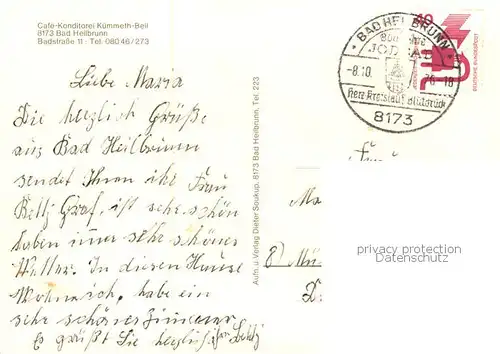 Café-Konditorei Kümmeth-Beil
8173 Bad Heilbrunn
Badstraße 11 · Tel. 08046/273
Liebe Maria
Die herzlich Grüße
aus Bad Heilbrunn
sendet Ihnen ihr Frau
Betty Graf, ist sehr schön
haben imer sehr schönes
Wetter. In diesen Hause
Wohne ich, habe ein
sehr schönes Zimmer
Es grüßt Sie herzlich ihre Betty
Aufn. u. Verlag Dieter Soukup, 8173 Bad Heilbrunn, Tel. 223
BAD HEILBRUNN
800 Jahre
JODBAD
-8.10. 76-18
8173
40
DEUTSCHE BUNDESPOST
Frau
Ma
8) Mü
privacy protection
Datenschutz